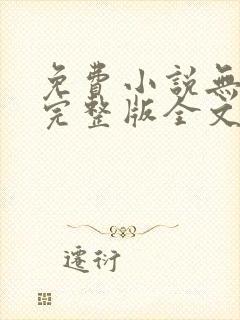 免費小說無
完整版全文
遷衍